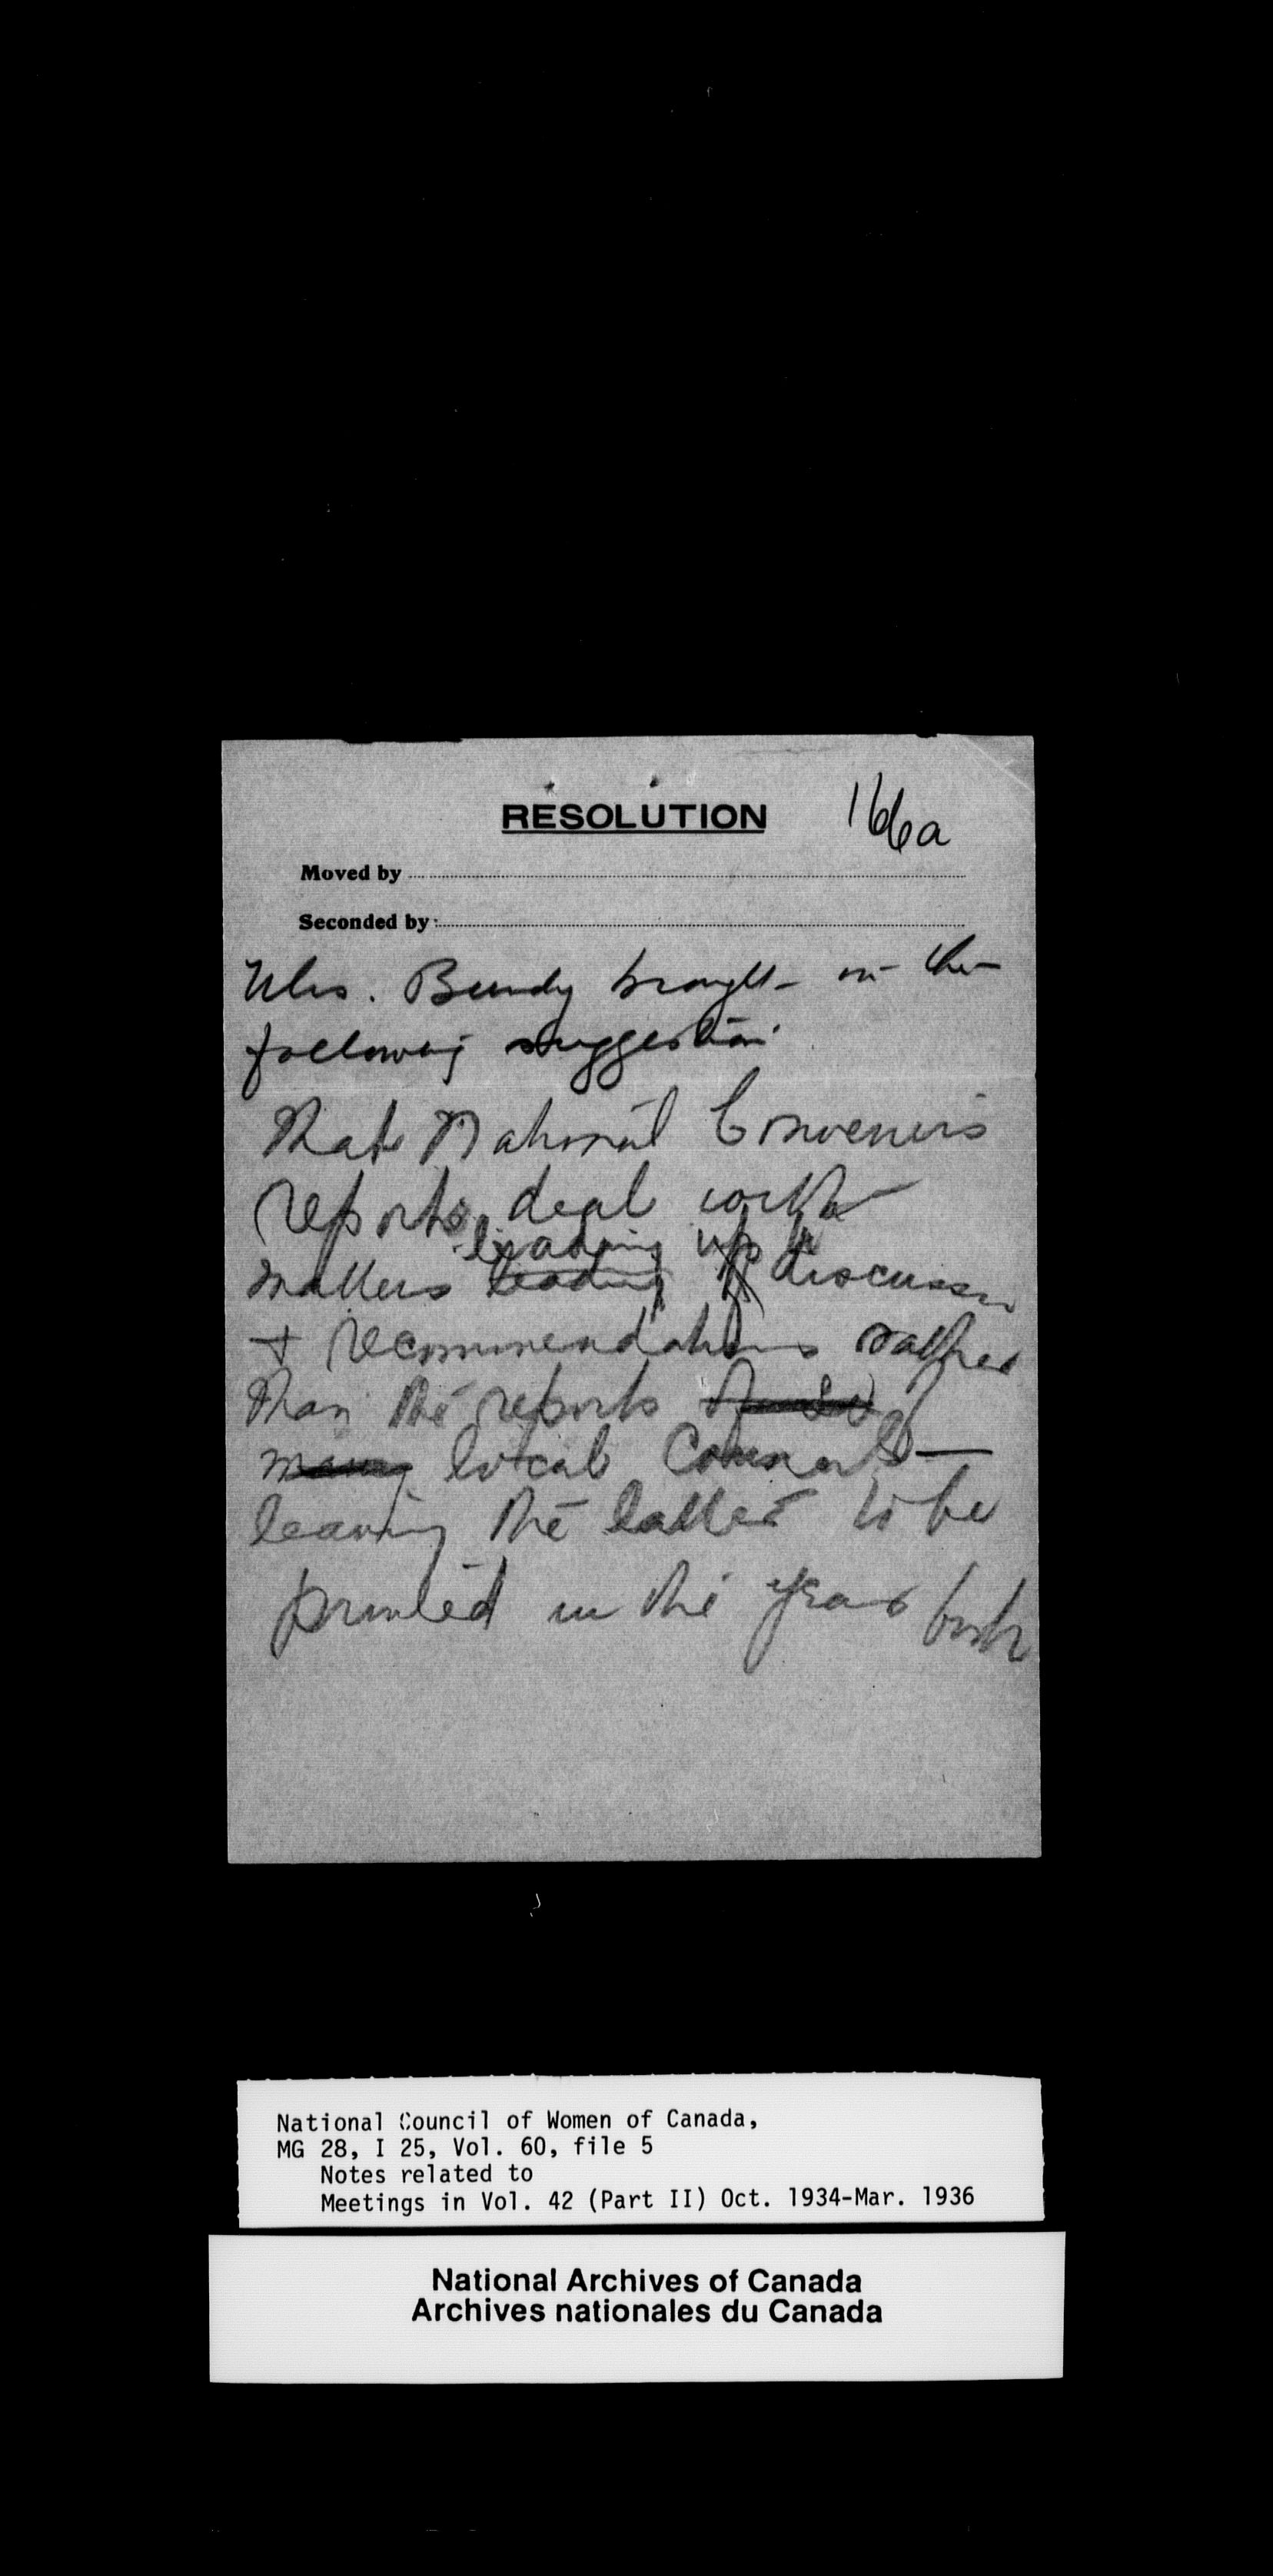 RESOLUTION 166a
Moved by
Seconded by
Mrs. Bundy brought in the
following suggestion
That National Conveners
reports deal with
leading up to
matters leading discussion
+ recommendations rather
than the reports of
many local Councils —
leaving the latter to be
printed in the year book
National Council of Women of Canada,
MG 28, I 25, Vol. 60, file 5
Notes related to
Meetings in Vol. 42 (Part II) Oct. 1934-Mar. 1936
National Archives of Canada
Archives nationales du Canada